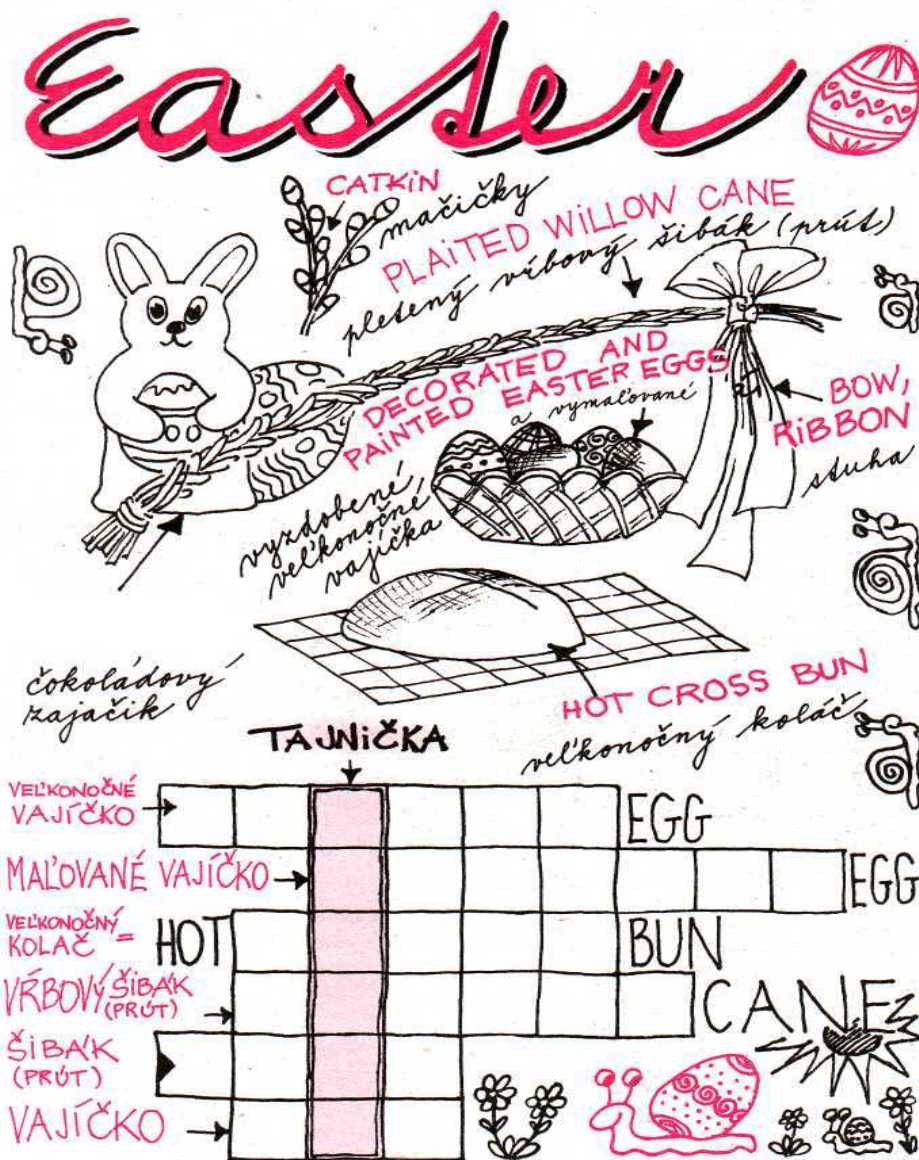 Easter
CATKiN
mačičky
PLAITED WILLOW CANE
pletený vŕbový šibák (prút)
DECORATED AND
PAINTED EASTER EGGS
a vymaľované
BOW,
RiBBON
stuha
vyzdobené
veľkonočné
vajíčka
čokoládový
zajačik
HOT CROSS BUN
veľkonočný koláč
TAJNiČKA
VEĽKONOČNÉ
VAJÍČKO
EGG
MAĽOVANÉ VAJÍČKO
EGG
VEĽKONOČNÝ
KOLAČ = HOT
BUN
VŔBOVÝ ŠIBÁK
(PRÚT)
CANE
ŠIBÁK
(PRÚT)
VAJÍČKO